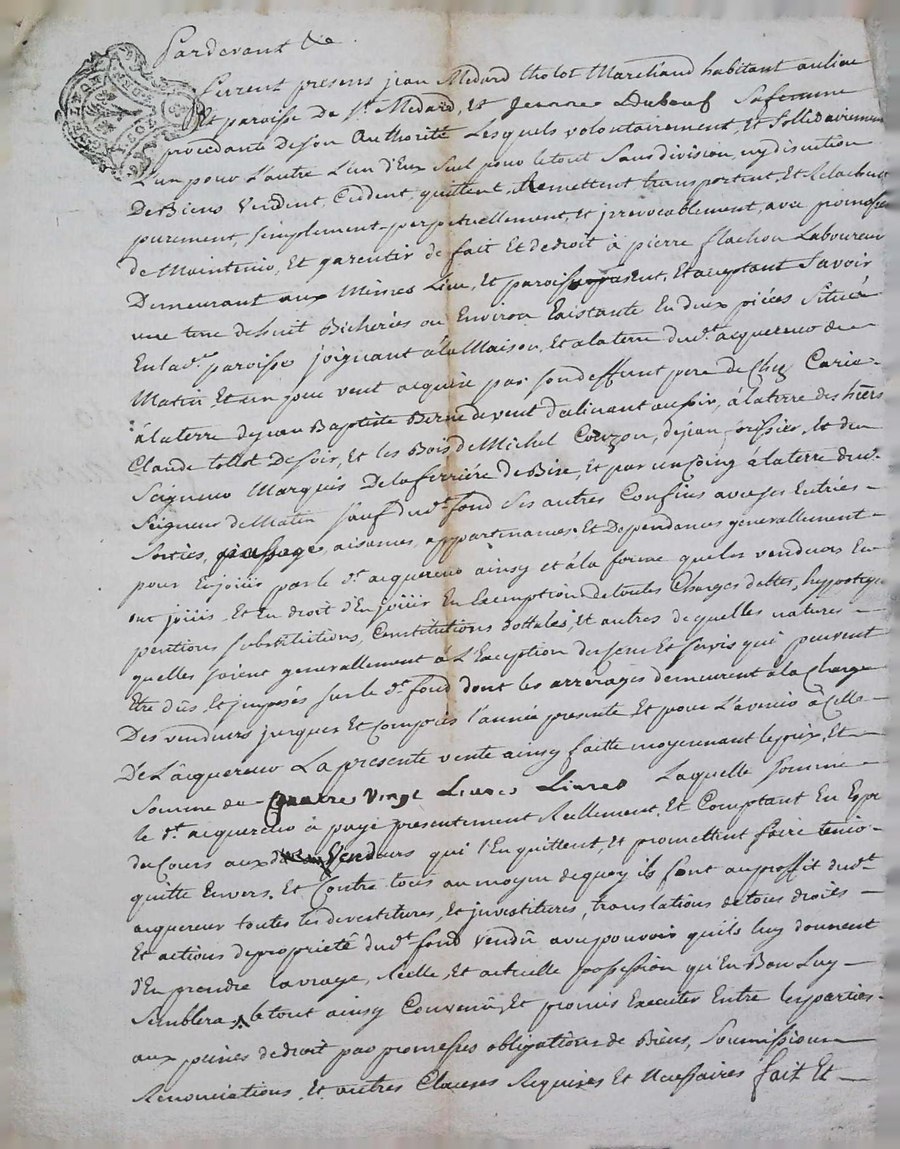 Pardevant &a.
furent presens jean Medard tholot Marchand habitant au lieu
Et paroisse de St. Medard, et Jeanne Duboeuf Sa femme
procedante de son Authorité Lesquels volontairement, Et Sollidairement
L'un pour L'autre L'un d'Eux Seul pour le tout Sans division, ny discution
De Biens Vendent, Cèdent, quittent, Remettent, transportent, Et Relachent
purement, simplement, perpetuellement, Et irrevocablement, avec promesse
de Maintenir, Et garentir de fait Et de droit à pierre flachon Laboureur
Demeurant aux Mèmes Lieu, Et paroisse present, Et acceptant Savoir
une terre de huit Bicherées ou Environ Existante En deux pièces Située
En lad. paroisse joignant à la Maison, Et a la terre dud. acquereur de
Matin Et un jour vent acquise par son deffunt pere de Chez
à la terre de jean Baptiste Berne de vent au Soir, à la terre des hiers
Claude tollot De Soir, Et les Bois de Michel Couzon, de jean Et du
Seigneur Marquis De la ferrière de Bise, Et par un Coing à la terre dud.
Seigneur de Matin Sauf dud. fond Ses autres Confins avec ses Entrées
Sorties, passage, aisances, appartenances, Et Dependances generallement
pour En joüir par le d. acquereur ainsy et à la forme que les vendeurs En
ont joüis Et En droit d'En joüir En Exemption de toutes Charges dettes, hypoteques
pentions Substitutions, Constitutions dottales, et autres de quelles natures
quelles soient generallement à L'Exception du Cens Et Servis qui peuvent
Etre dûs Et imposés Sur le d. fond dont les arrerages demeurent à la Charge
Des vendeurs jusques Et Compris l'année presente Et pour L'avenir à Celle
De L'acquereur La presente vente ainsy faitte moyennant le prix, Et
Somme de quatre Vingt Livres Laquelle Somme
le d. acquereur à payé presentement Reellement, Et Comptant En Espe
du Cours aux d. Vendeurs qui l'En quittent, Et promettent faire tenir
quitte Envers, Et Contre tous au moyen de quoy ils font au proffit dud.
acquereur toutes les devestitures, Et investitures, translations de tous droits
Et actions de proprieté dud. fond vendû avec pouvoir qu'ils luy donnent
d'En prendre la vraye, Reelle, Et actuelle possession qu'En Bon Luy
Semblera, le tout ainsy Convenû, Et promis Executer Entre les parties
aux peines de droit par promesses obligations de Biens, Soumissions
Renonciations, Et autres Clauses Requises Et Necessaires fait Et